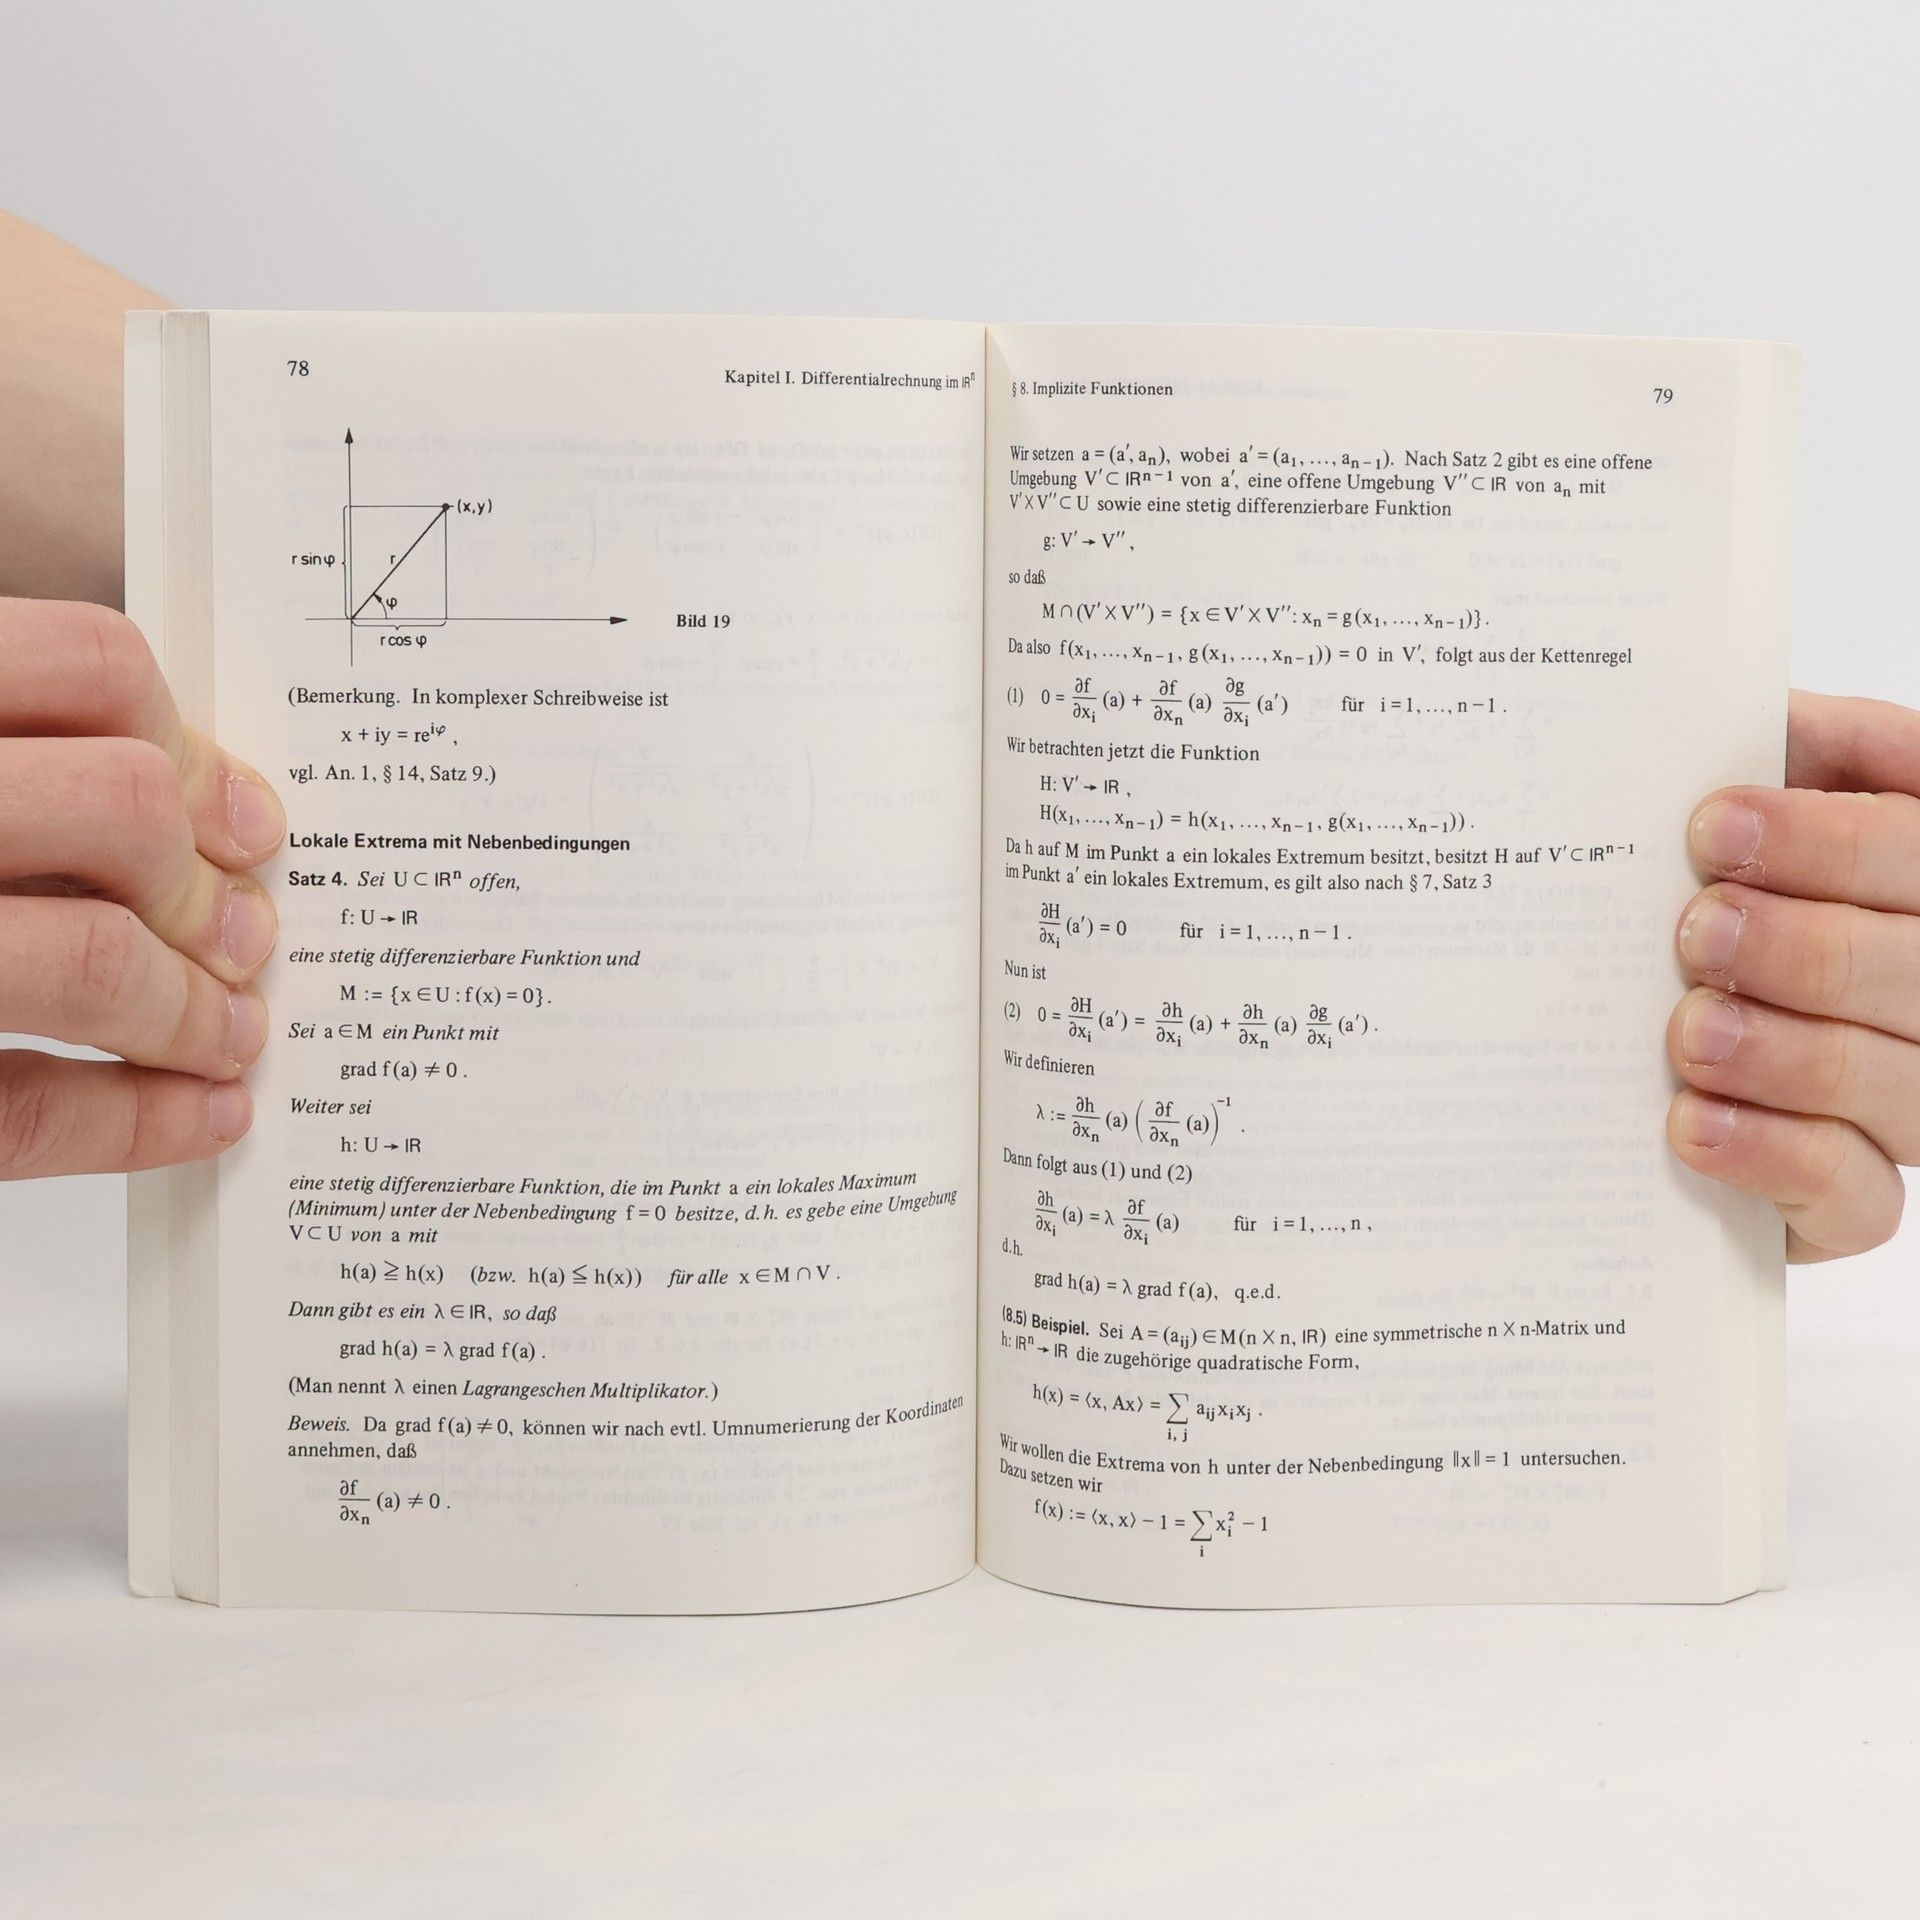 78
Kapitel I. Differentialrechnung im ℝⁿ
(x,y)
r sin φ
r
φ
r cos φ
Bild 19
(Bemerkung. In komplexer Schreibweise ist
x + iy = re^{iφ} ,
vgl. An. 1, § 14, Satz 9.)
Lokale Extrema mit Nebenbedingungen
Satz 4. Sei U ⊂ ℝⁿ offen,
f: U → ℝ
eine stetig differenzierbare Funktion und
M := {x ∈ U : f(x) = 0}.
Sei a ∈ M ein Punkt mit
grad f(a) ≠ 0 .
Weiter sei
h: U → ℝ
eine stetig differenzierbare Funktion, die im Punkt a ein lokales Maximum
(Minimum) unter der Nebenbedingung f = 0 besitze, d.h. es gebe eine Umgebung
V ⊂ U von a mit
h(a) ≧ h(x) (bzw. h(a) ≦ h(x)) für alle x ∈ M ∩ V .
Dann gibt es ein λ ∈ ℝ, so daß
grad h(a) = λ grad f(a) .
(Man nennt λ einen Lagrangeschen Multiplikator.)
Beweis. Da grad f(a) ≠ 0, können wir nach evtl. Umnumerierung der Koordinaten
annehmen, daß
∂f/∂xₙ (a) ≠ 0 .
§ 8. Implizite Funktionen
79
Wir setzen a = (a′, aₙ), wobei a′ = (a₁, …, aₙ₋₁). Nach Satz 2 gibt es eine offene
Umgebung V′ ⊂ ℝⁿ⁻¹ von a′, eine offene Umgebung V″ ⊂ ℝ von aₙ mit
V′ × V″ ⊂ U sowie eine stetig differenzierbare Funktion
g: V′ → V″ ,
so daß
M ∩ (V′ × V″) = {x ∈ V′ × V″ : xₙ = g(x₁, …, xₙ₋₁)}.
Da also f(x₁, …, xₙ₋₁, g(x₁, …, xₙ₋₁)) = 0 in V′, folgt aus der Kettenregel
(1) 0 = ∂f/∂xᵢ (a) + ∂f/∂xₙ (a) ∂g/∂xᵢ (a′) für i = 1, …, n − 1 .
Wir betrachten jetzt die Funktion
H: V′ → ℝ ,
H(x₁, …, xₙ₋₁) = h(x₁, …, xₙ₋₁, g(x₁, …, xₙ₋₁)) .
Da h auf M im Punkt a ein lokales Extremum besitzt, besitzt H auf V′ ⊂ ℝⁿ⁻¹
im Punkt a′ ein lokales Extremum, es gilt also nach § 7, Satz 3
∂H/∂xᵢ (a′) = 0 für i = 1, …, n − 1 .
Nun ist
(2) 0 = ∂H/∂xᵢ (a′) = ∂h/∂xᵢ (a) + ∂h/∂xₙ (a) ∂g/∂xᵢ (a′) .
Wir definieren
λ := ∂h/∂xₙ (a) (∂f/∂xₙ (a))⁻¹ .
Dann folgt aus (1) und (2)
∂h/∂xᵢ (a) = λ ∂f/∂xᵢ (a) für i = 1, …, n ,
d.h.
grad h(a) = λ grad f(a), q.e.d.
(8.5) Beispiel. Sei A = (aᵢⱼ) ∈ M(n × n, ℝ) eine symmetrische n × n-Matrix und
h: ℝⁿ → ℝ die zugehörige quadratische Form,
h(x) = ⟨x, Ax⟩ = ∑_{i, j} aᵢⱼ xᵢ xⱼ .
Wir wollen die Extrema von h unter der Nebenbedingung ‖x‖ = 1 untersuchen.
Dazu setzen wir
f(x) := ⟨x, x⟩ − 1 = ∑_{i} xᵢ² − 1